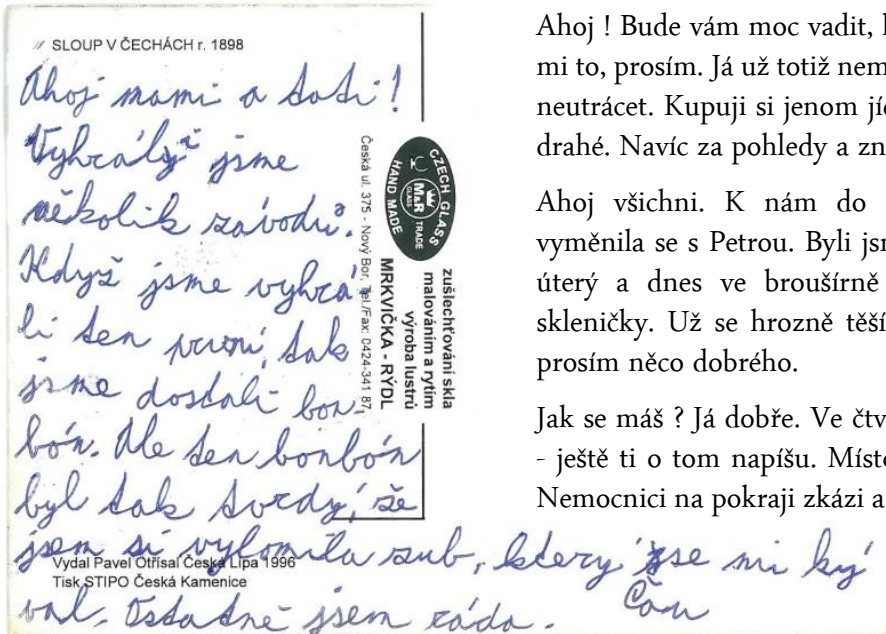 SLOUP V ČECHÁCH r. 1898
Ahoj mami a tati!
Vyhrály jsme
několik závodů.
Když jsme vyhrá
li ten první, tak
jsme dostali bon-
bón. Ale ten bonbón
byl tak tvrdý, že
jsem si vylomila zub, který se mi ký
val. Ostatně jsem ráda.
Čau
Vydal Pavel Otřísal Česká Lípa 1996
Tisk STIPO Česká Kamenice
CZECH GLASS
M&R
GLASS TRADE
HAND MADE
zušlechťování skla
malováním a rytím
výroba lustrů
MRKVIČKA - RÝDL
Česká ul. 375 - Nový Bor, Tel./Fax: 0424-341 87
Ahoj ! Bude vám moc vadit,
mi to, prosím. Já už totiž nem
neutrácet. Kupuji si jenom jíd
drahé. Navíc za pohledy a zn
Ahoj všichni. K nám do
vyměnila se s Petrou. Byli jsm
úterý a dnes ve broušírně
skleničky. Už se hrozně těší
prosím něco dobrého.
Jak se máš ? Já dobře. Ve čtv
- ještě ti o tom napíšu. Míst
Nemocnici na pokraji zkázi a